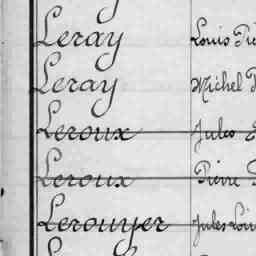 Leray Louis
Leray Michel
Leroux Jules
Leroux Pierre
Lerouyer Jules Louis